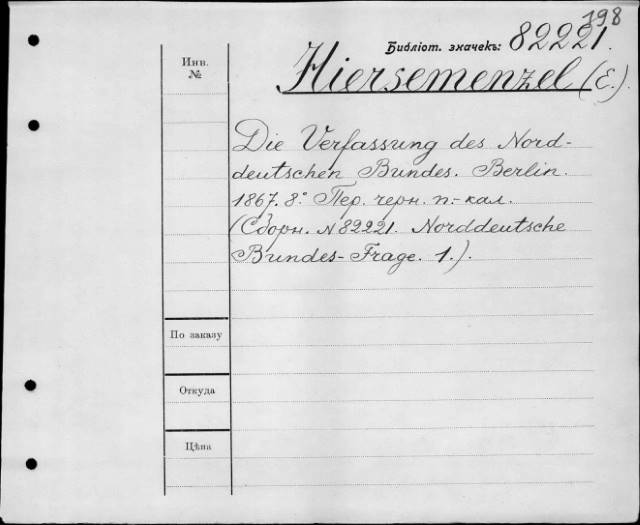 198
Библіот. значекъ: 82221.
Инв.
№
Hiersemenzel (E.).
Die Verfassung des Nord-
deutschen Bundes. Berlin.
1867. 8.° Пер. черн. п.-кал.
(Сборн. № 82221. Norddeutsche
Bundes-Frage. 1.).
По заказу
Откуда
Цѣна